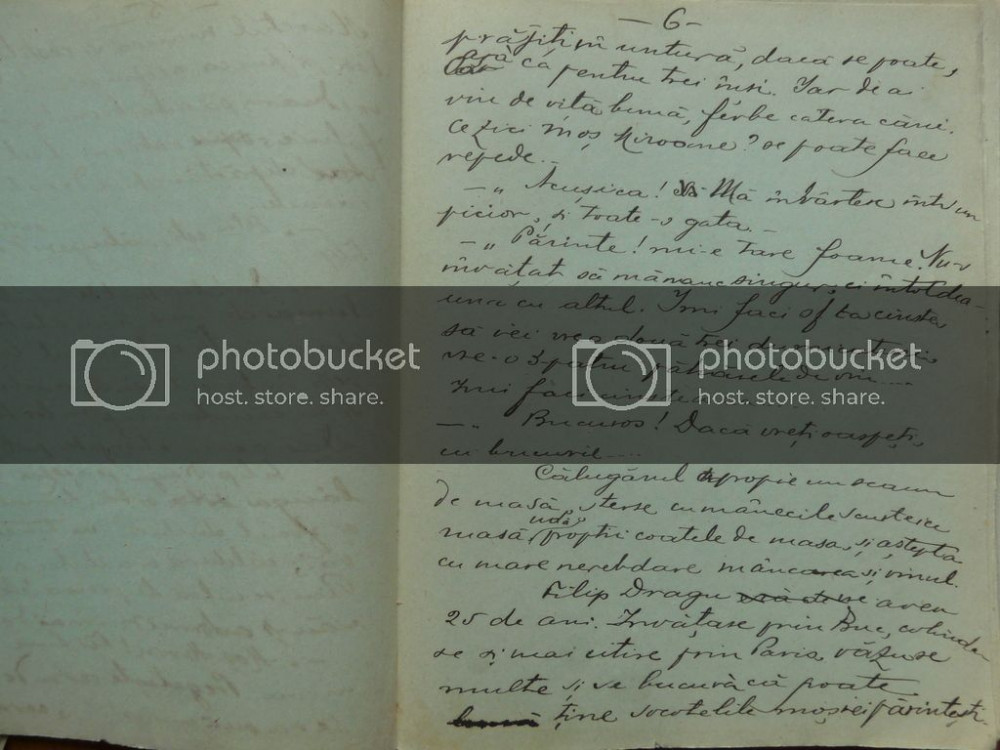 — 6 —
prăjiți în untură, dacă se poate,
fără că pentru trei inși. Iar de ai
vin de viță bună, ferbe câteva căni.
Ce zici moș Miroane? se poate face
repede. –
— „ Acușica! Mă învârtesc într'un
picior, și toate-s gata. –
— „ Părinte! mi-e tare foame. Nu-s
învățat să mănânc singur, ci întotdea-
una cu altul. Imi faci
să iei vre-o două trei
vre-o 3-patru păhărele de vin ....
Imi
— „ Bucuros! Dacă vreți oaspeți,
cu bucurie ....
Călugărul apropie un scaun
de masă, șterse cu mânecile
masă, propti coatele de masa, și aștepta
cu mare nerebdare mâncarea și vinul.
Filip Dragu avea
25 de ani. Invățase prin Buc, colindase
se și mai citise prin Paris, văzuse
multe și se bucură că poate
ține socotelile moșiei părintești.
photobucket
host. store. share.
photobucket
host. store. share.